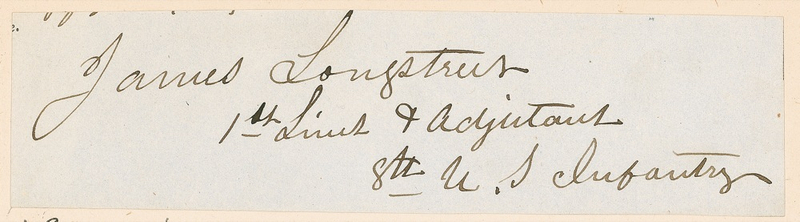 James Longstreet
1st Lieut & Adjutant
8th U.S Infantry